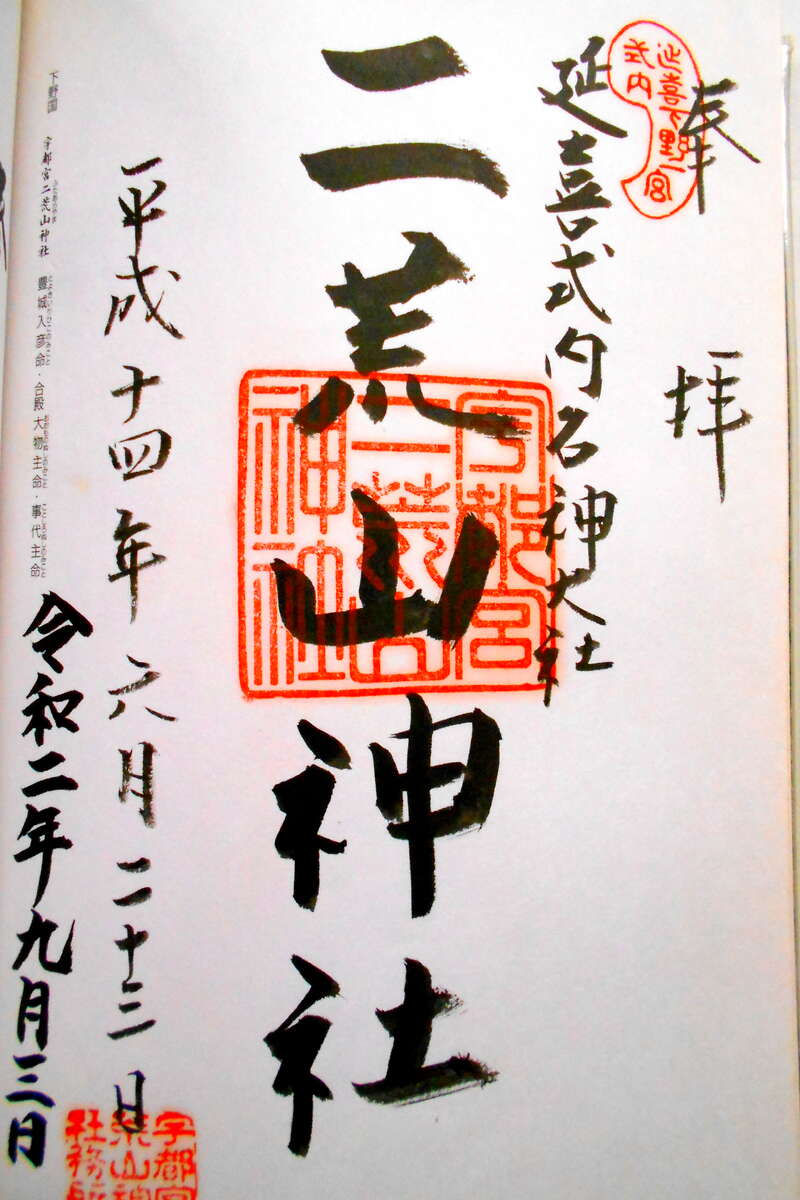 奉拝
延喜式内
下野一宮
延喜式内名神大社
二荒山神社
宇都宮
二荒山
神社
平成十四年六月二十三日
宇都宮
荒山神
社務所
下野国 宇都宮二荒山神社 豊城入彦命・合殿大物主命・事代主命
令和二年九月三日